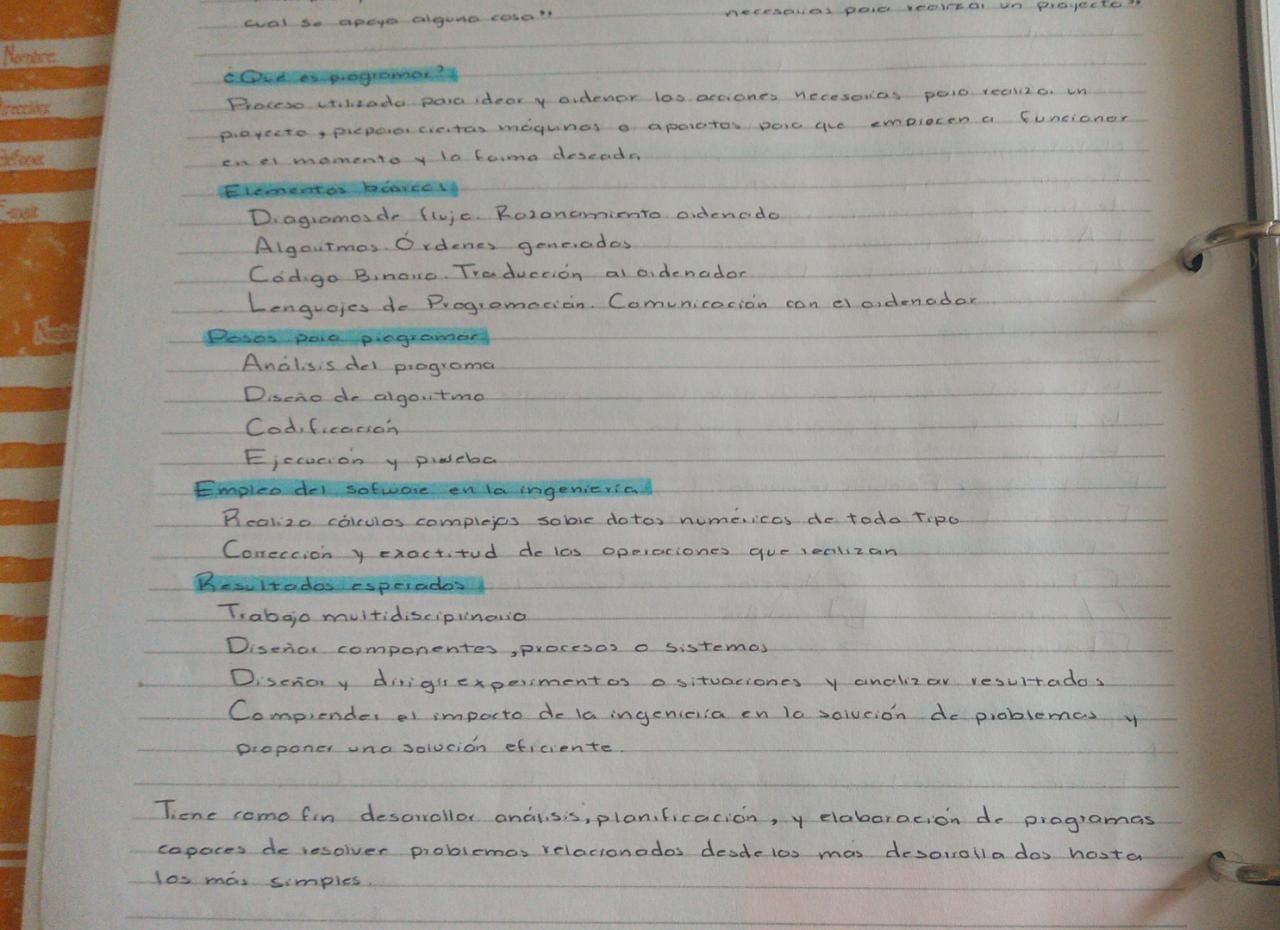 cual se apoya alguna cosa"
necesarias para realizar un proyecto"
¿Qué es programar?
Proceso utilizado para idear y ordenar las acciones necesarias para realizar un
proyecto, preparar ciertas máquinas o aparatos para que empiecen a funcionar
en el momento y la forma deseada.
Elementos básicos
Diagramas de flujo. Razonamiento ordenado
Algoritmos. Órdenes generados
Código Binario. Traducción al ordenador
Lenguajes de Programación. Comunicación con el ordenador
Pasos para programar
Análisis del programa
Diseño de algoritmo
Codificación
Ejecución y prueba
Empleo del sofware en la ingeniería
Realiza cálculos complejos sobre datos numéricos de todo tipo
Corrección y exactitud de las operaciones que realizan
Resultados esperados
Trabajo multidisciplinario
Diseñar componentes, procesos o sistemas
Diseñar y dirigir experimentos o situaciones y analizar resultados
Comprender el impacto de la ingeniería en la solución de problemas y
proponer una solución eficiente.
Tiene como fin desarrollar análisis, planificación, y elaboración de programas
capaces de resolver problemas relacionados desde los más desarrollados hasta
los más simples.
Nombre